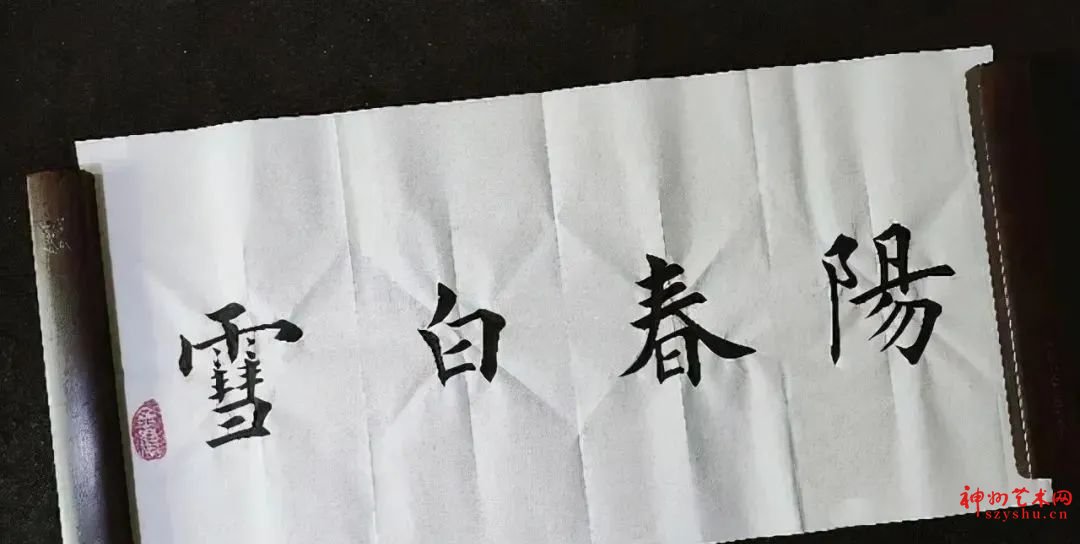 陽春白雪
神州艺术网
szyshu.cn